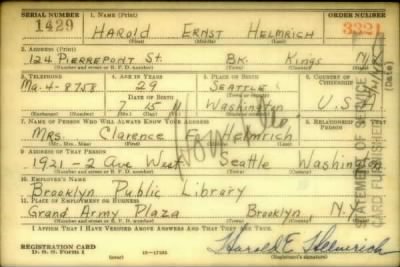 SERIAL NUMBER 1. NAME (Print) ORDER NUMBER
1429 HAROLD ERNST HELMRICH 3321
(First) (Middle) (Last)
2. ADDRESS (Print)
124 PIERREPONT St. BK. Kings N.Y.
(Number and street or R. F. D. number) (Town) (County) (State)
3. TELEPHONE 4. AGE IN YEARS 5. PLACE OF BIRTH 6. COUNTRY OF CITIZENSHIP
Ma. 4-8758 29 SEATTLE
DATE OF BIRTH
7 15 11 Washington U.S.A
(Mo.) (Day) (Yr.)
7. NAME OF PERSON WHO WILL ALWAYS KNOW YOUR ADDRESS 8. RELATIONSHIP OF THAT PERSON
Mrs. Clarence F. Helmrich
(Mr., Mrs., Miss) (First) (Middle) (Last)
9. ADDRESS OF THAT PERSON
1921-2 Ave West Seattle Washington
(Number and street or R. F. D. number) (Town) (County) (State)
10. EMPLOYER'S NAME
Brooklyn Public Library
11. PLACE OF EMPLOYMENT OR BUSINESS
Grand Army Plaza Brooklyn N.Y.
(Number and street or R. F. D. number) (Town) (County) (State)
I AFFIRM THAT I HAVE VERIFIED ABOVE ANSWERS AND THAT THEY ARE TRUE.
REGISTRATION CARD
D. S. S. Form 1 Harold E. Helmrich
(Registrant's signature)